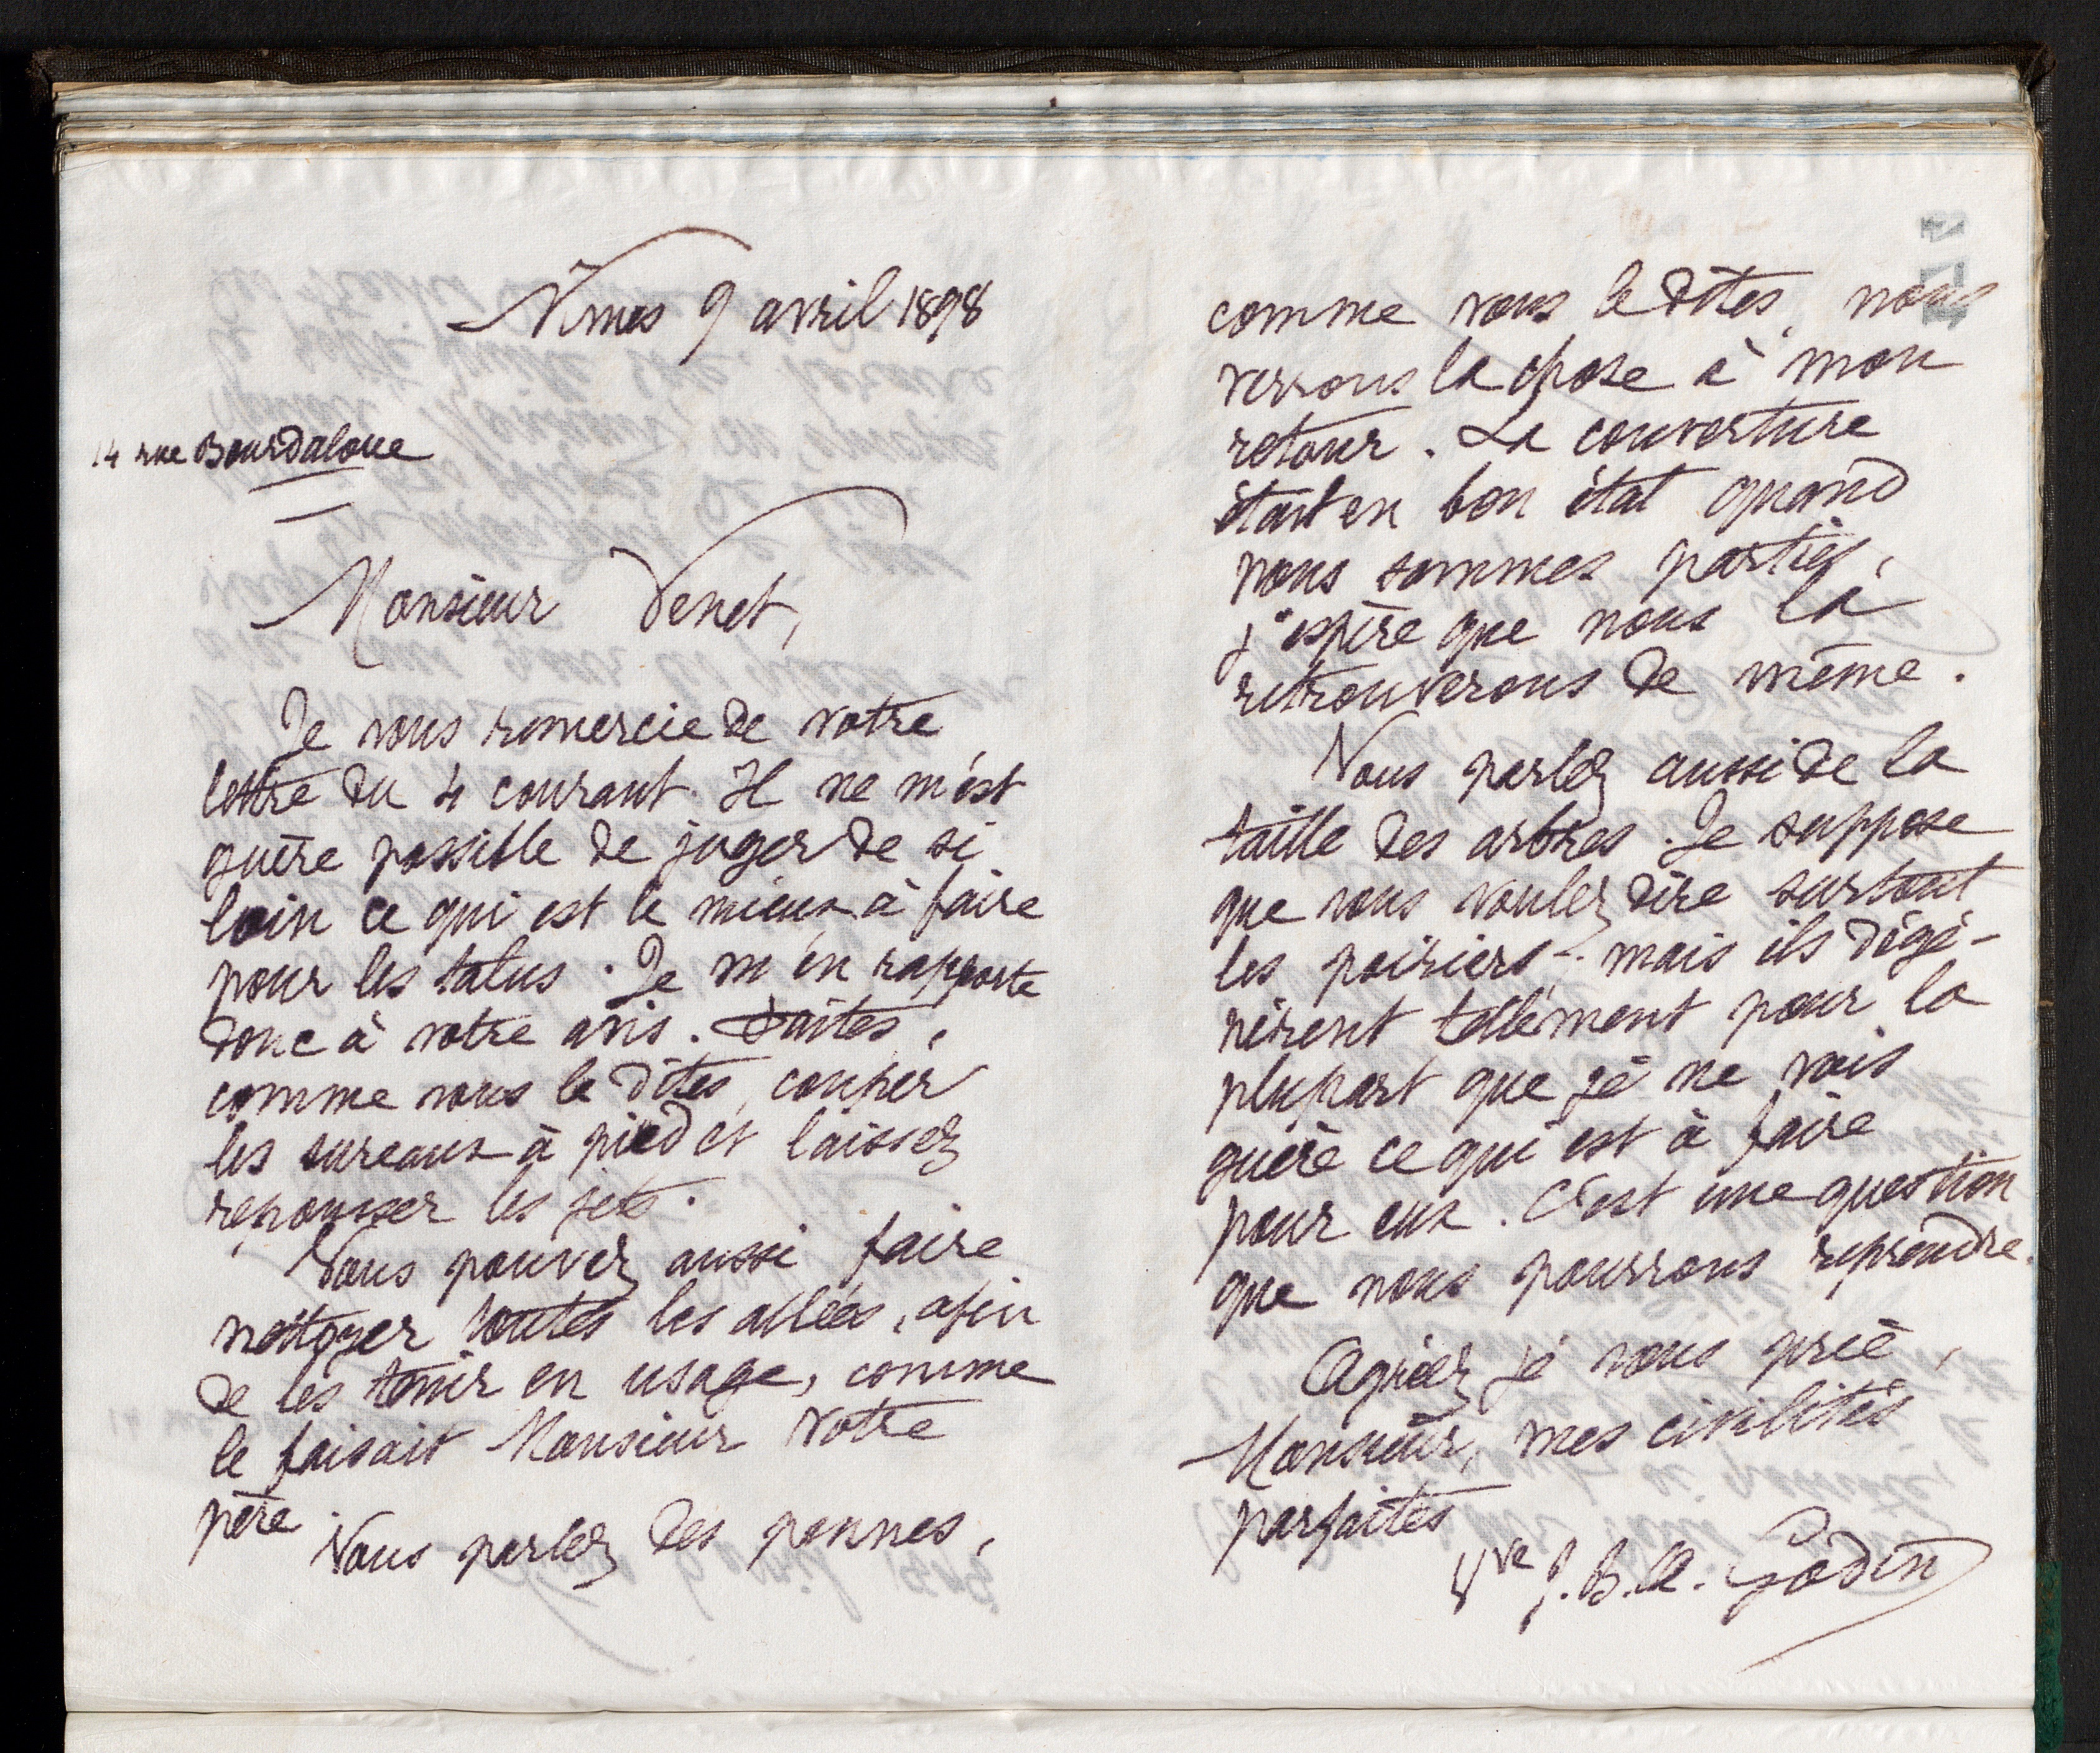 Nîmes 9 avril 1898
14 rue Bourdaloue
Monsieur Venet,
Je vous remercie de votre
lettre du 4 courant. Il ne m'est
guère possible de juger de si
loin ce qui est le mieux à faire
pour les talus. Je m'en rapporte
donc à votre avis. Faites,
comme vous le dites, couper
les sureaux à pied et laissez
repousser les jets.
Vous pouvez aussi faire
nettoyer toutes les allées, afin
de les tenir en usage, comme
le faisait Monsieur votre
père.
Vous parlez des pannes,
comme vous le dites, nous
verrons la chose à mon
retour. La couverture
était en bon état quand
nous sommes parties,
j'espère que nous la
retrouverons de même.
Vous parlez aussi de la
taille des arbres. Je suppose
que vous voulez dire surtout
les poiriers - mais ils dégé-
nèrent tellement pour la
plupart que je ne vois
guère ce qui est à faire
pour eux. C'est une question
que nous pourrons reprendre.
Agréez je vous prie,
Monsieur, mes civilités
parfaites
Vve J. B. A. Godin